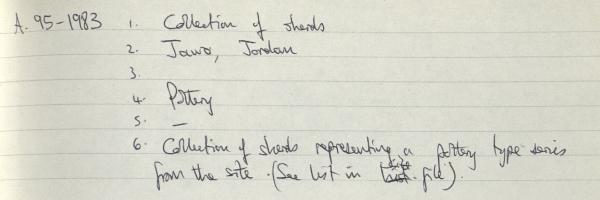 A. 95-1983 1. Collection of sherds
2. Jawa, Jordan
3.
4. Pottery
5. —
6. Collection of sherds representing a pottery type series
from the site. (See list in site file).